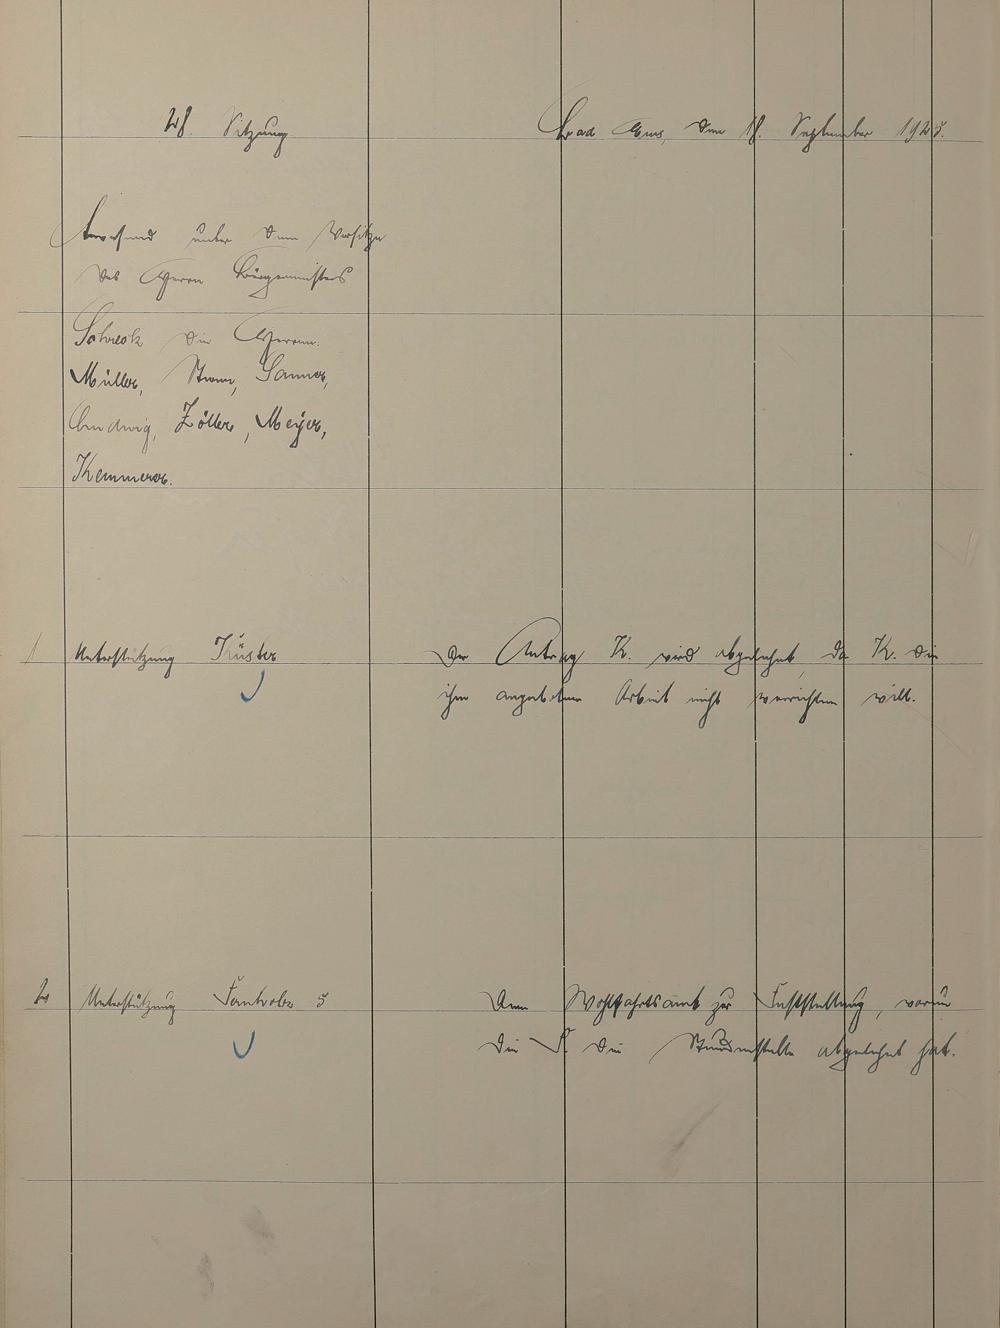 28. Sitzung
Bad Ems, den 18. September 1925.
Anwesend unter dem Vorsitze
des Herrn Bürgermeisters
Schreck die Herren:
Müller, Sanner,
Ludwig, Zöller, Meyer,
Kemmerer.
1 Unterstützung Küster
Der Antrag K. wird abgelehnt, da K. die
ihm angebotene Arbeit nicht verrichten will.
2 Unterstützung
Dem Wohlfahrtsamt zur Feststellung, warum
die F. die Stundenstelle abgelehnt hat.